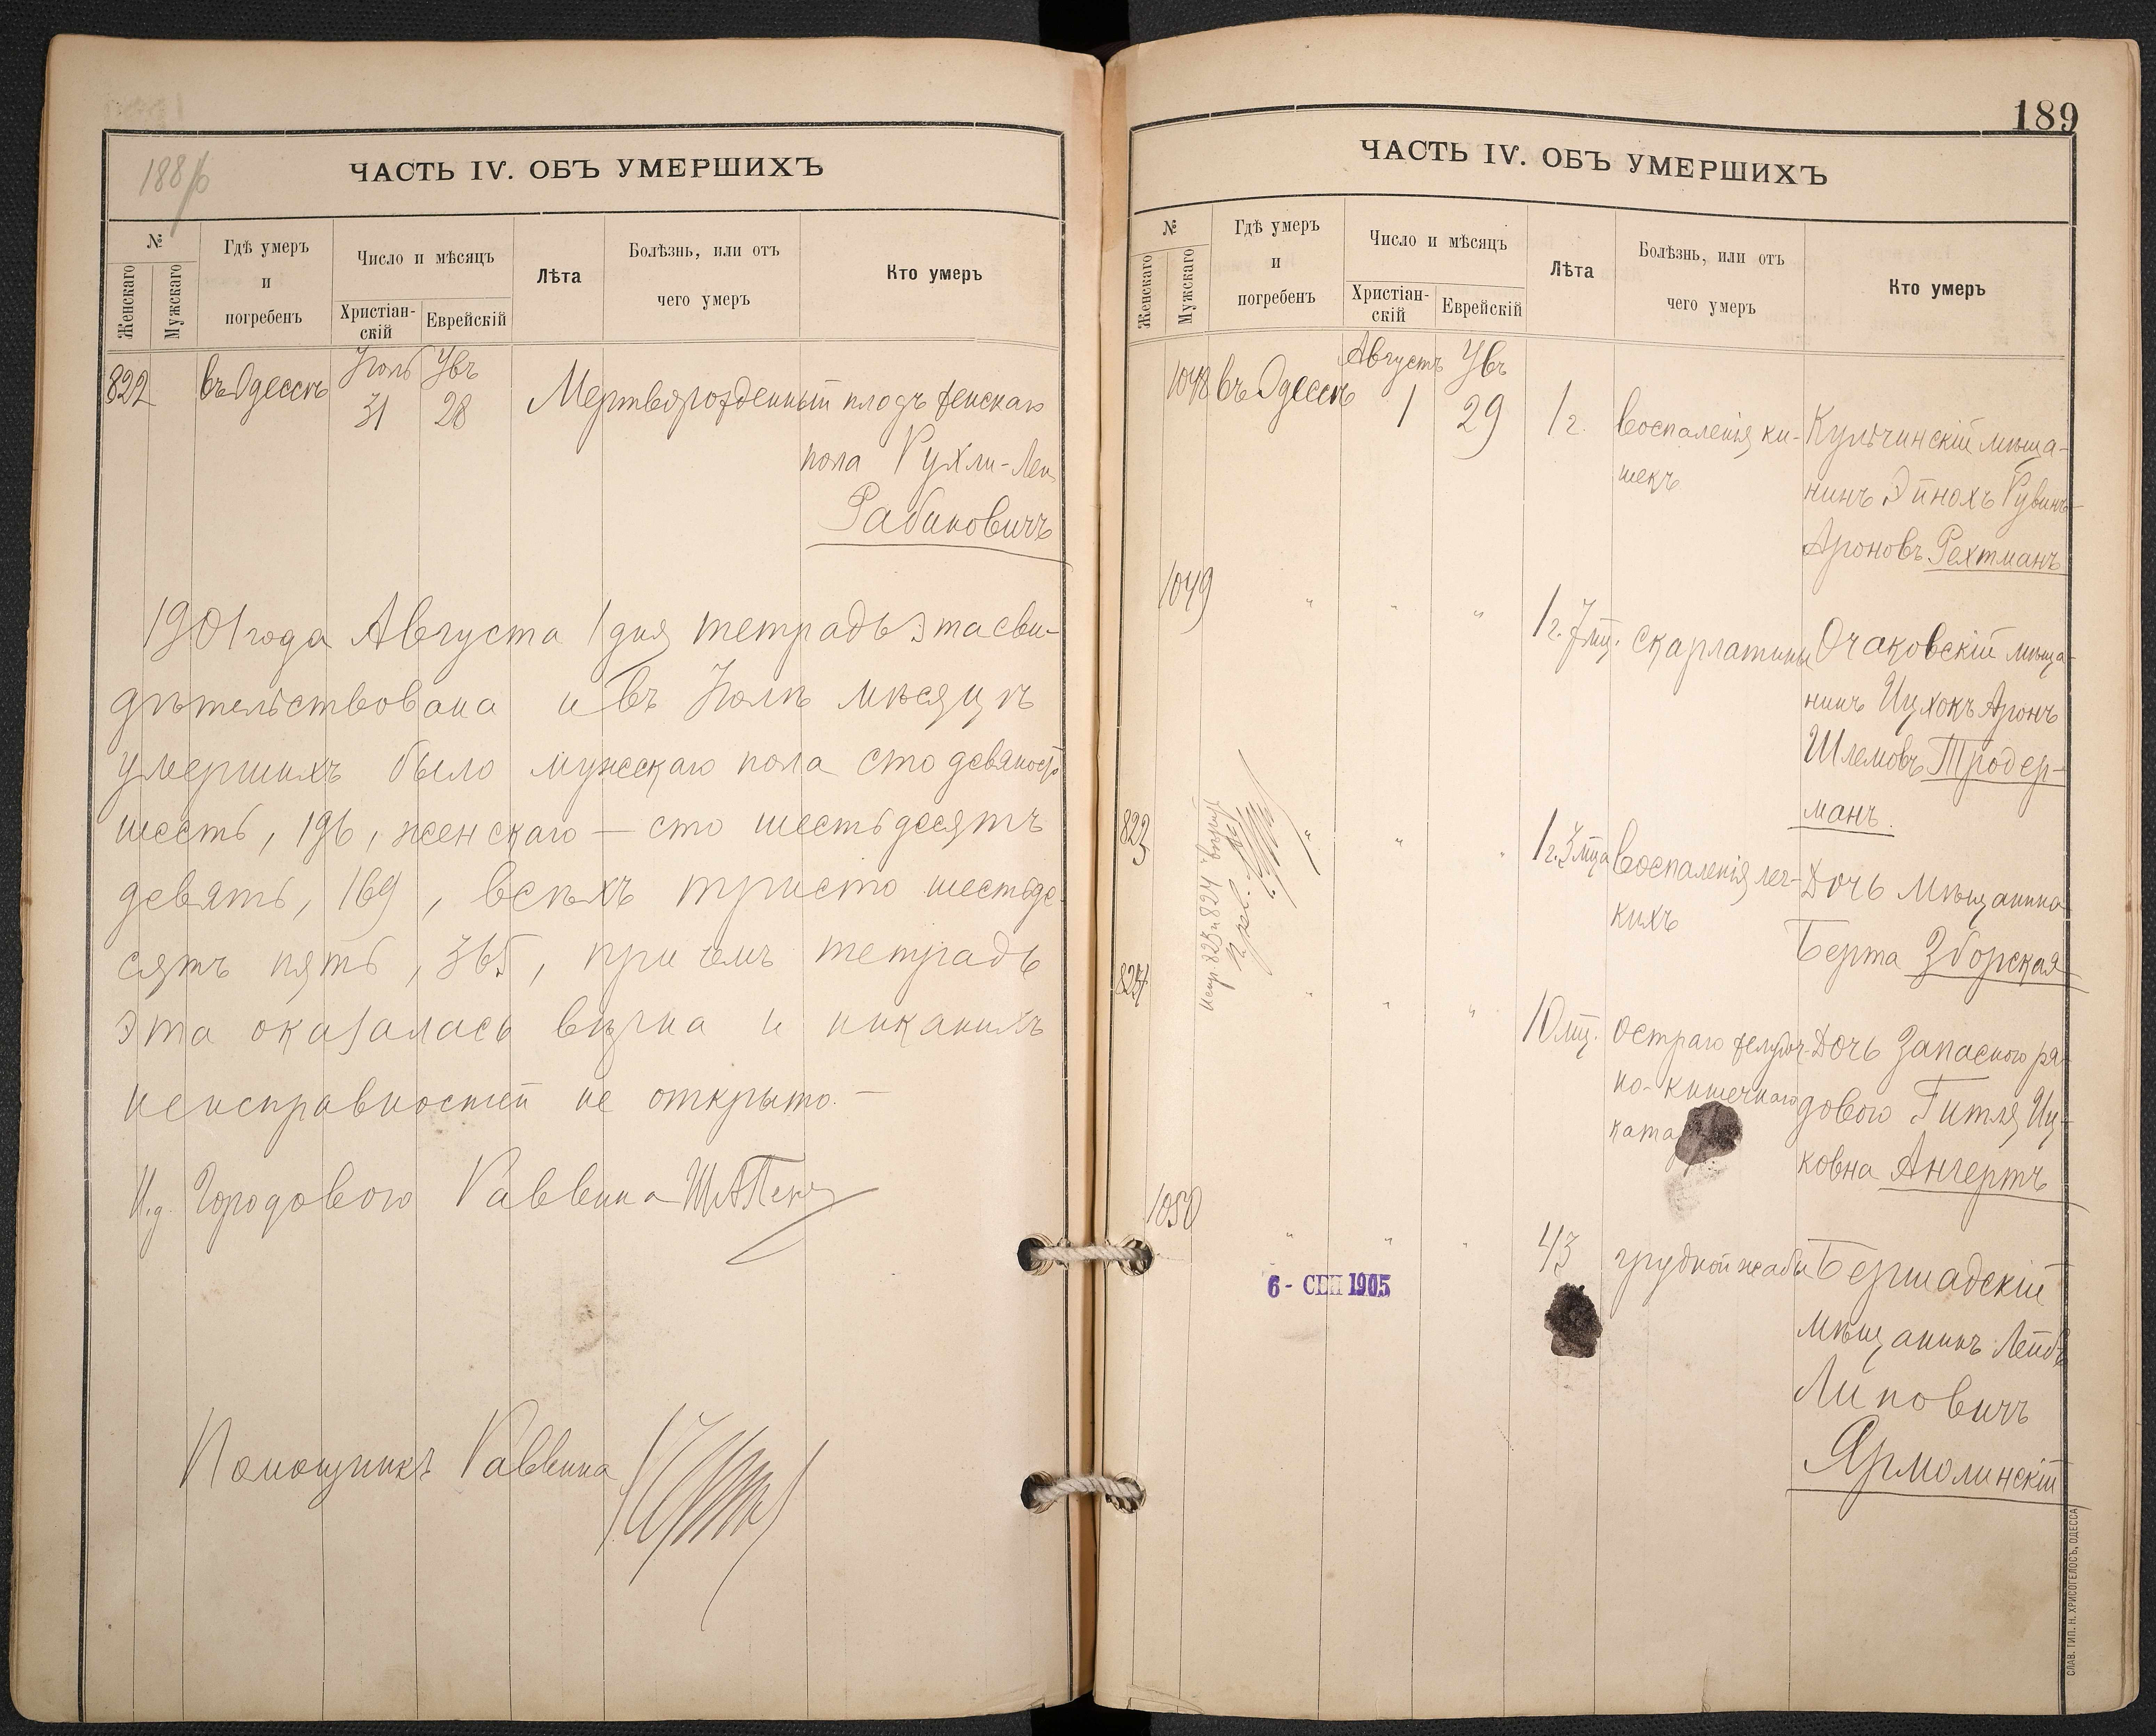 188/b
ЧАСТЬ IV. ОБЪ УМЕРШИХЪ
№
Женскаго
Мужскаго
Гдѣ умеръ
и
погребенъ
Число и мѣсяцъ
Христіан-
скій
Еврейскій
Лѣта
Болѣзнь, или отъ
чего умеръ
Кто умеръ
822 въ Одессѣ Іюль 31 Увъ 28 Мертворожденный плодъ женскаго
пола Рухли-Леи
Рабиновичъ
1901 года Августа 1 дня тетрадь эта сви-
дѣтельствована и въ Іюлѣ мѣсяцѣ
умершихъ было мужескаго пола сто девяносто
шесть, 196, женскаго — сто шестьдесятъ
девять, 169, всѣхъ триста шестьде-
сятъ пять, 365, при чемъ тетрадь
эта оказалась вѣрна и никакихъ
неисправностей не открыто. —
И.д. Городового Раввина
Помощникъ Раввина
189
ЧАСТЬ IV. ОБЪ УМЕРШИХЪ
№
Женскаго
Мужскаго
Гдѣ умеръ
и
погребенъ
Число и мѣсяцъ
Христіан-
скій
Еврейскій
Лѣта
Болѣзнь, или отъ
чего умеръ
Кто умеръ
1048 въ Одессѣ Августъ 1 Увъ 29 1 г. воспаленія ки- Кульчинскій мѣща-
шекъ нинъ Эйнохъ Рувинъ-
Ароновъ Рехтманъ
1049 " " " 1 г. 7 мц. скарлатины Очаковскій мѣща-
нинъ Ицхокъ Аронъ
Шлемовъ Тродер-
манъ.
823 " " " 1 г. 3 мца воспаленія лег- Дочь мѣщанина
кихъ Берта Зборская
Испр. 823 и 824 вѣрить
824 " " " 10 мц. остраго желудоч- Дочь запасного ря-
но-кишечнаго дового Гитля Иц-
ката ковна Ангертъ
1050 " " " 43 грудной жабы Бершадскій
мѣщанинъ Лейбъ
Липовичъ
Ярмолинскій
6 - СЕП 1905
СЛАВ. ТИП. Н. ХРИСОГЕЛОСЪ, ОДЕССА